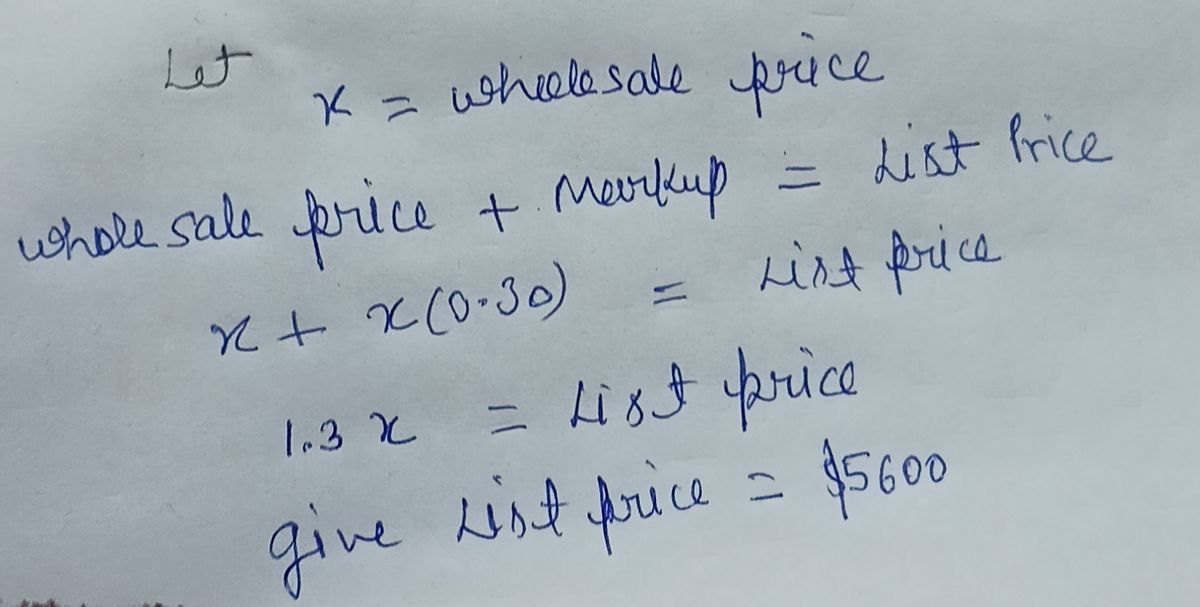 Let
x = wholesale price
wholesale price + Markup = List Price
x + x(0.30) = List price
1.3 x = List price
give List price = $5600